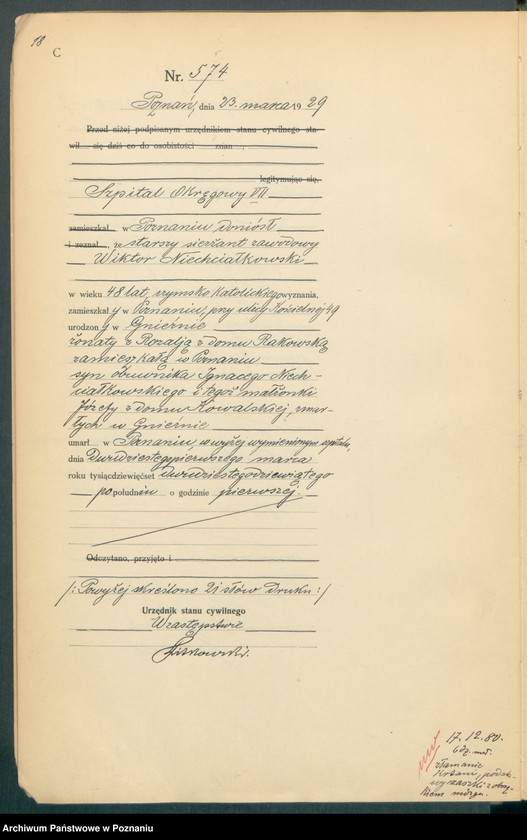 18
C
Nr. 574
Poznań, dnia 23. marca 1929
Przed niżej podpisanym urzędnikiem stanu cywilnego sta-
wił się dziś co do osobistości znan
legitymując się,
Szpital Okręgowy VII
zamieszkał w Poznaniu doniósł
i zeznał, że starszy sierżant zawodowy
Wiktor Niechciałkowski
w wieku 48 lat, rzymsko katolickiego wyznania,
zamieszkały w Poznaniu, przy ulicy Kościelnej 49
urodzony w Gnieźnie
żonaty z Rozalją z domu Rakowską
zamieszkałą w Poznaniu
syn obuwnika Ignacego Niech-
ciałkowskiego i tegoż małżonki
Józefy z domu Kowalskiej, zmar-
łych w Gnieźnie
umarł w Poznaniu, w wyżej wymienionym szpitalu,
dnia dwudziestegopierwszego marca
roku tysiącdziewięćset dwudziestegodziewiątego
po południu o godzinie pierwszej.
Odczytano, przyjęto i
/: Powyżej skreślono 21 słów druku :/
Urzędnik stanu cywilnego
W zastępstwie
17.12.80.
złamanie
Archiwum Państwowe w Poznaniu